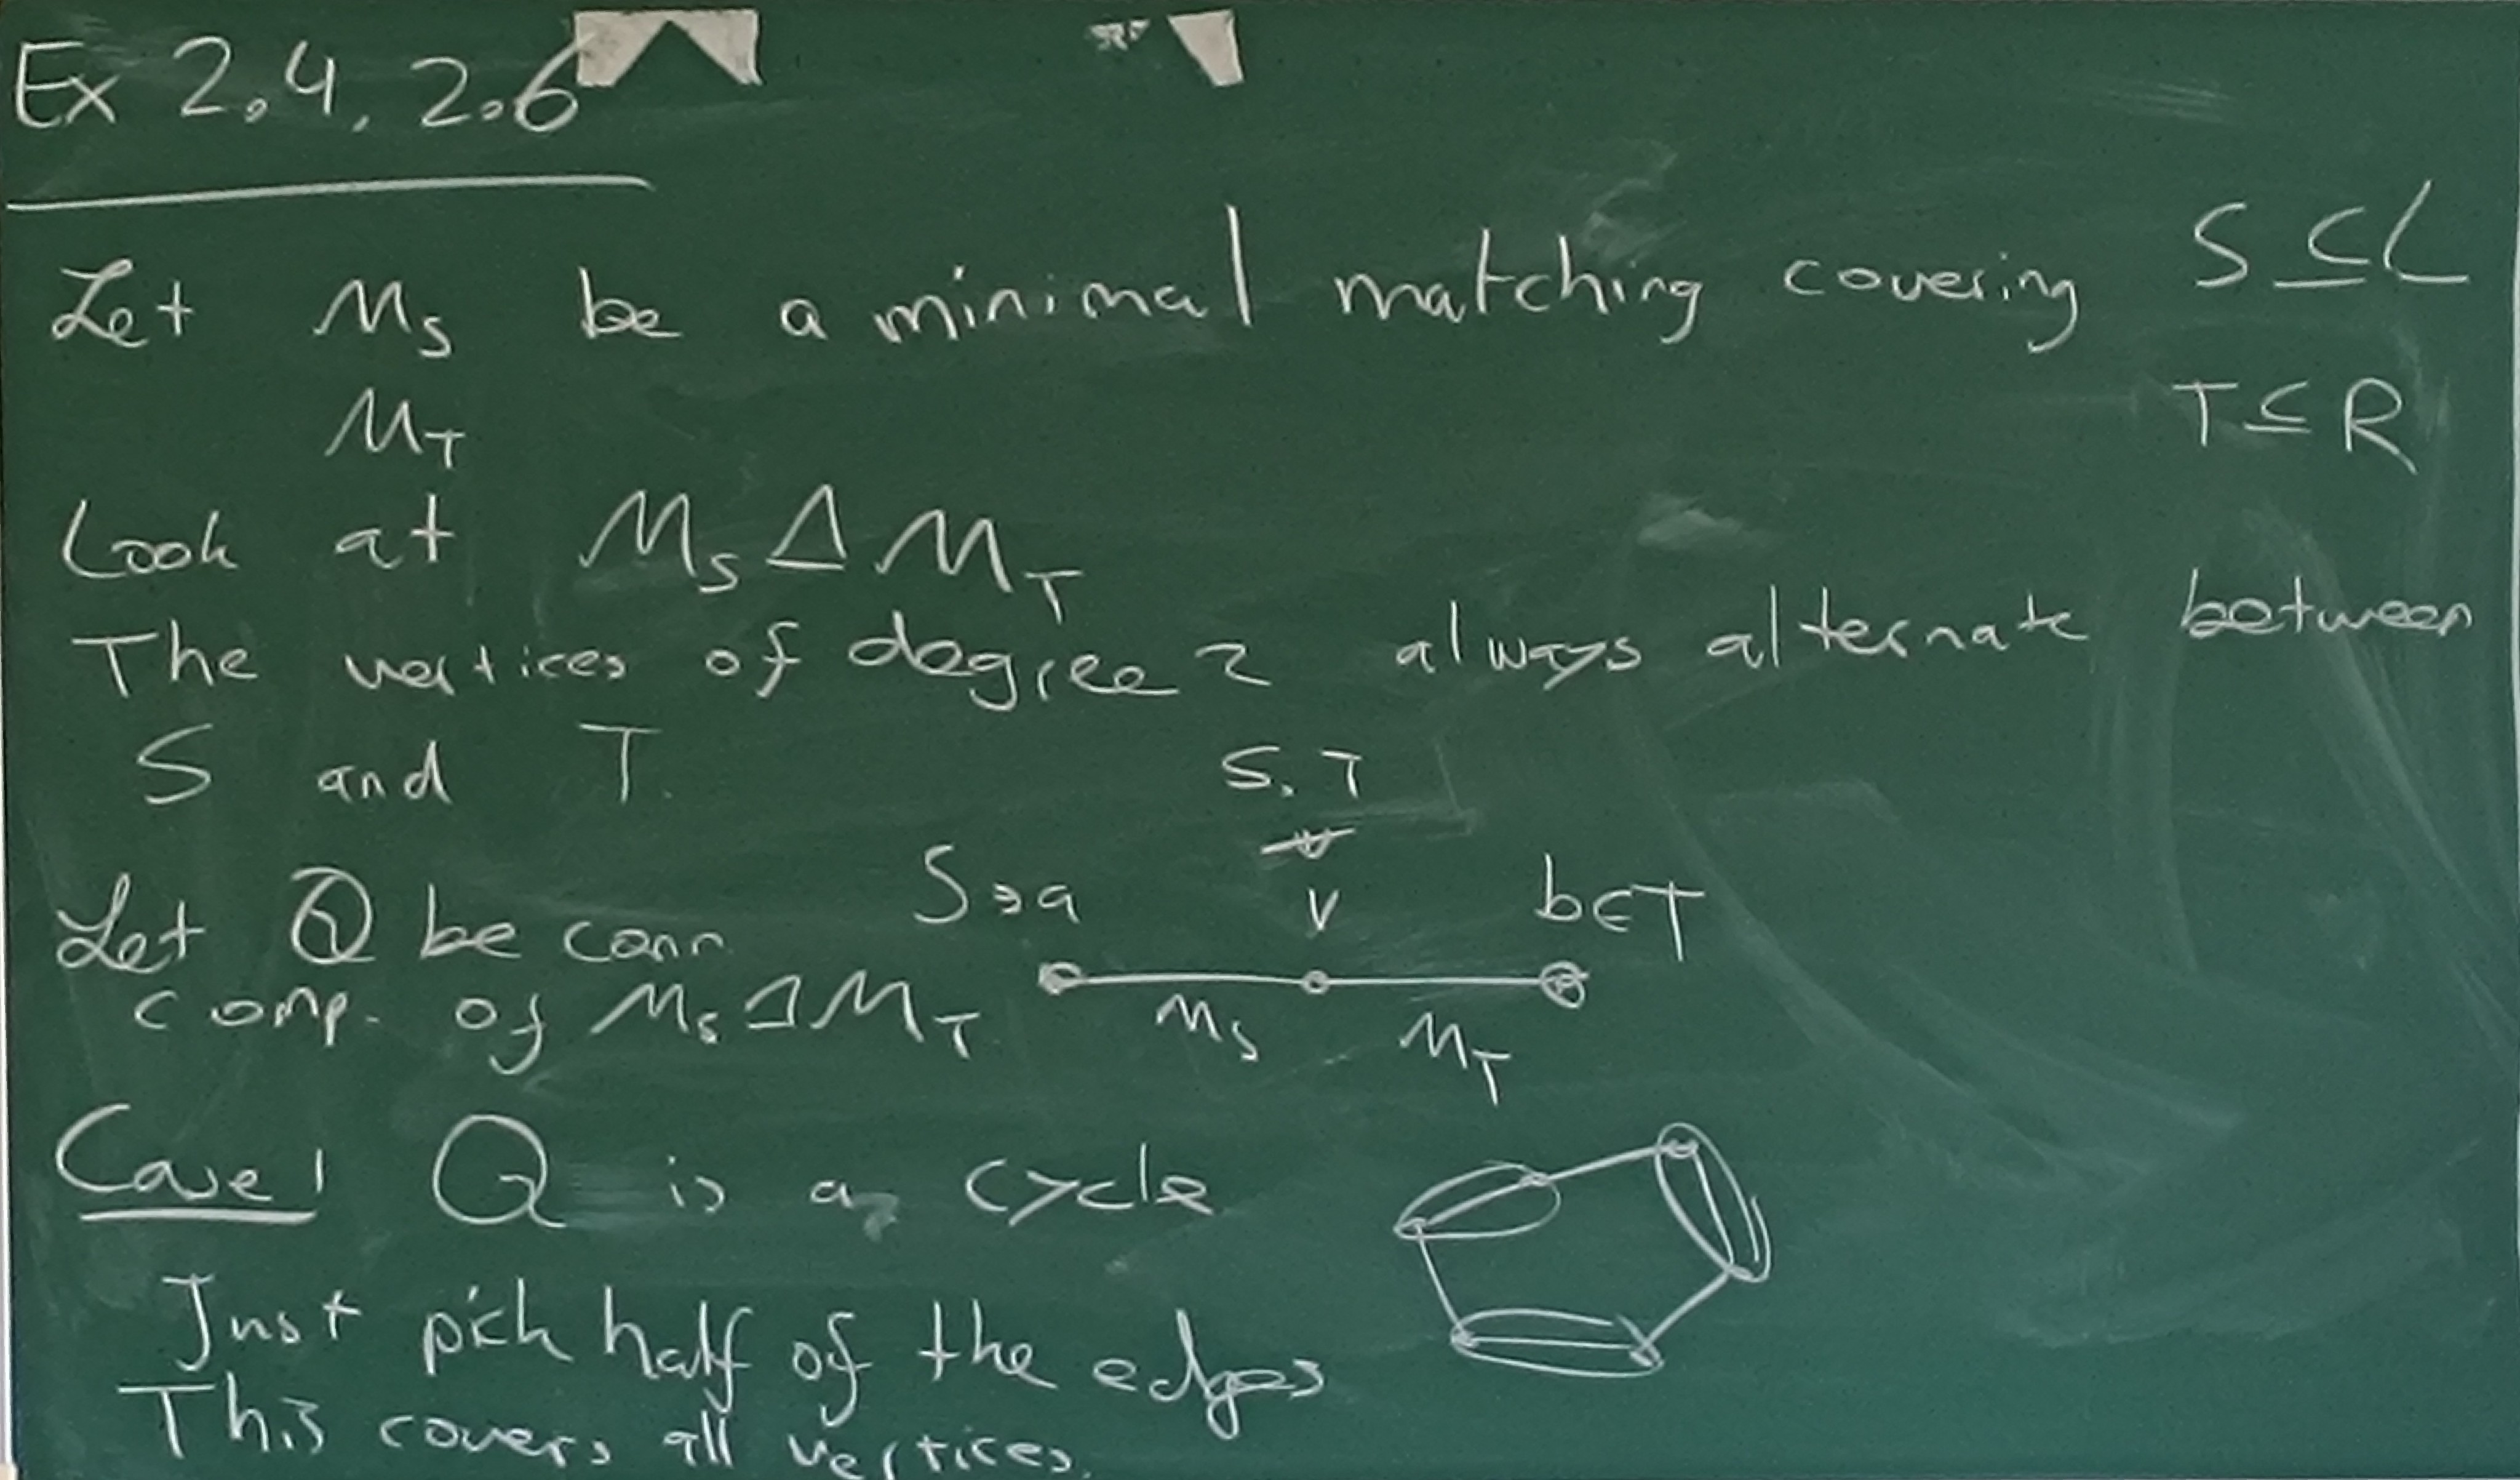 Ex 2.4, 2.6
Let M_S be a minimal matching covering S ⊆ L
M_T T ⊆ R
Look at M_S Δ M_T
The vertices of degree 2 always alternate between
S and T.
S, T
S ∋ a v b ∈ T
Let Q be conn
comp. of M_S Δ M_T M_S M_T
Case 1 Q is a cycle
Just pick half of the edges
This covers all vertices.